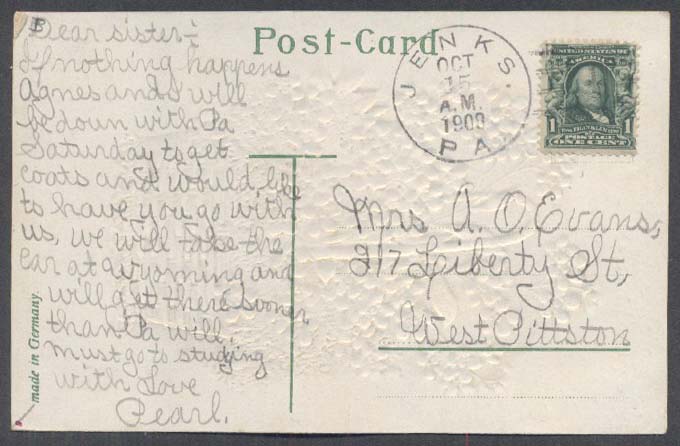 Post-Card
Dear sister:-
If nothing happens
Agnes and I will
be down with Pa
Saturday to get
coats and would like
to have you go with
us, we will take the
car at Wyoming and
will get there sooner
than Pa will
must go to studying
with Love
Pearl.
made in Germany.
JENKS.
OCT
15
A.M.
1909
PA
UNITED STATES OF
AMERICA
1 1
POSTAGE
ONE CENT
Mrs A. O. Evans,
217 Liberty St,
West Pittston